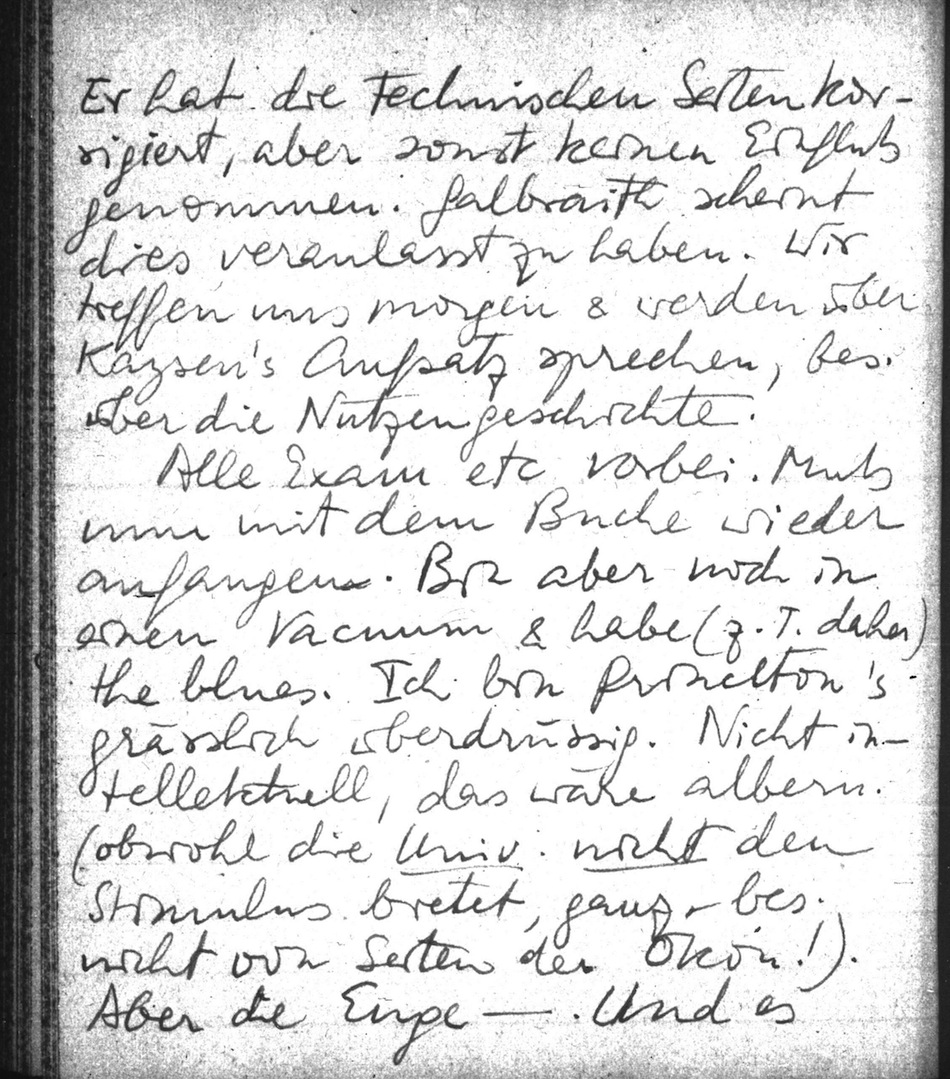 Er hat die technischen Seiten kor-
rigiert, aber sonst keinen Einfluß
genommen. Galbraith scheint
dies veranlasst zu haben. Wir
treffen uns morgen & werden über
Kaysen's Aufsatz sprechen, bes.
über die Nutzengeschichte.
Alle Exam etc vorbei. Muß
nun mit dem Buche wieder
anfangen. Bin aber noch in
einen Vacuum & habe (z.T. daher)
the blues. Ich bin Princeton's
grässlich überdrüssig. Nicht in-
tellektuell, das wäre albern.
(obwohl die Univ. nicht den
Stimulus bietet, ganz bes.
nicht von Seiten der Ökon!).
Aber die Enge —. Und es